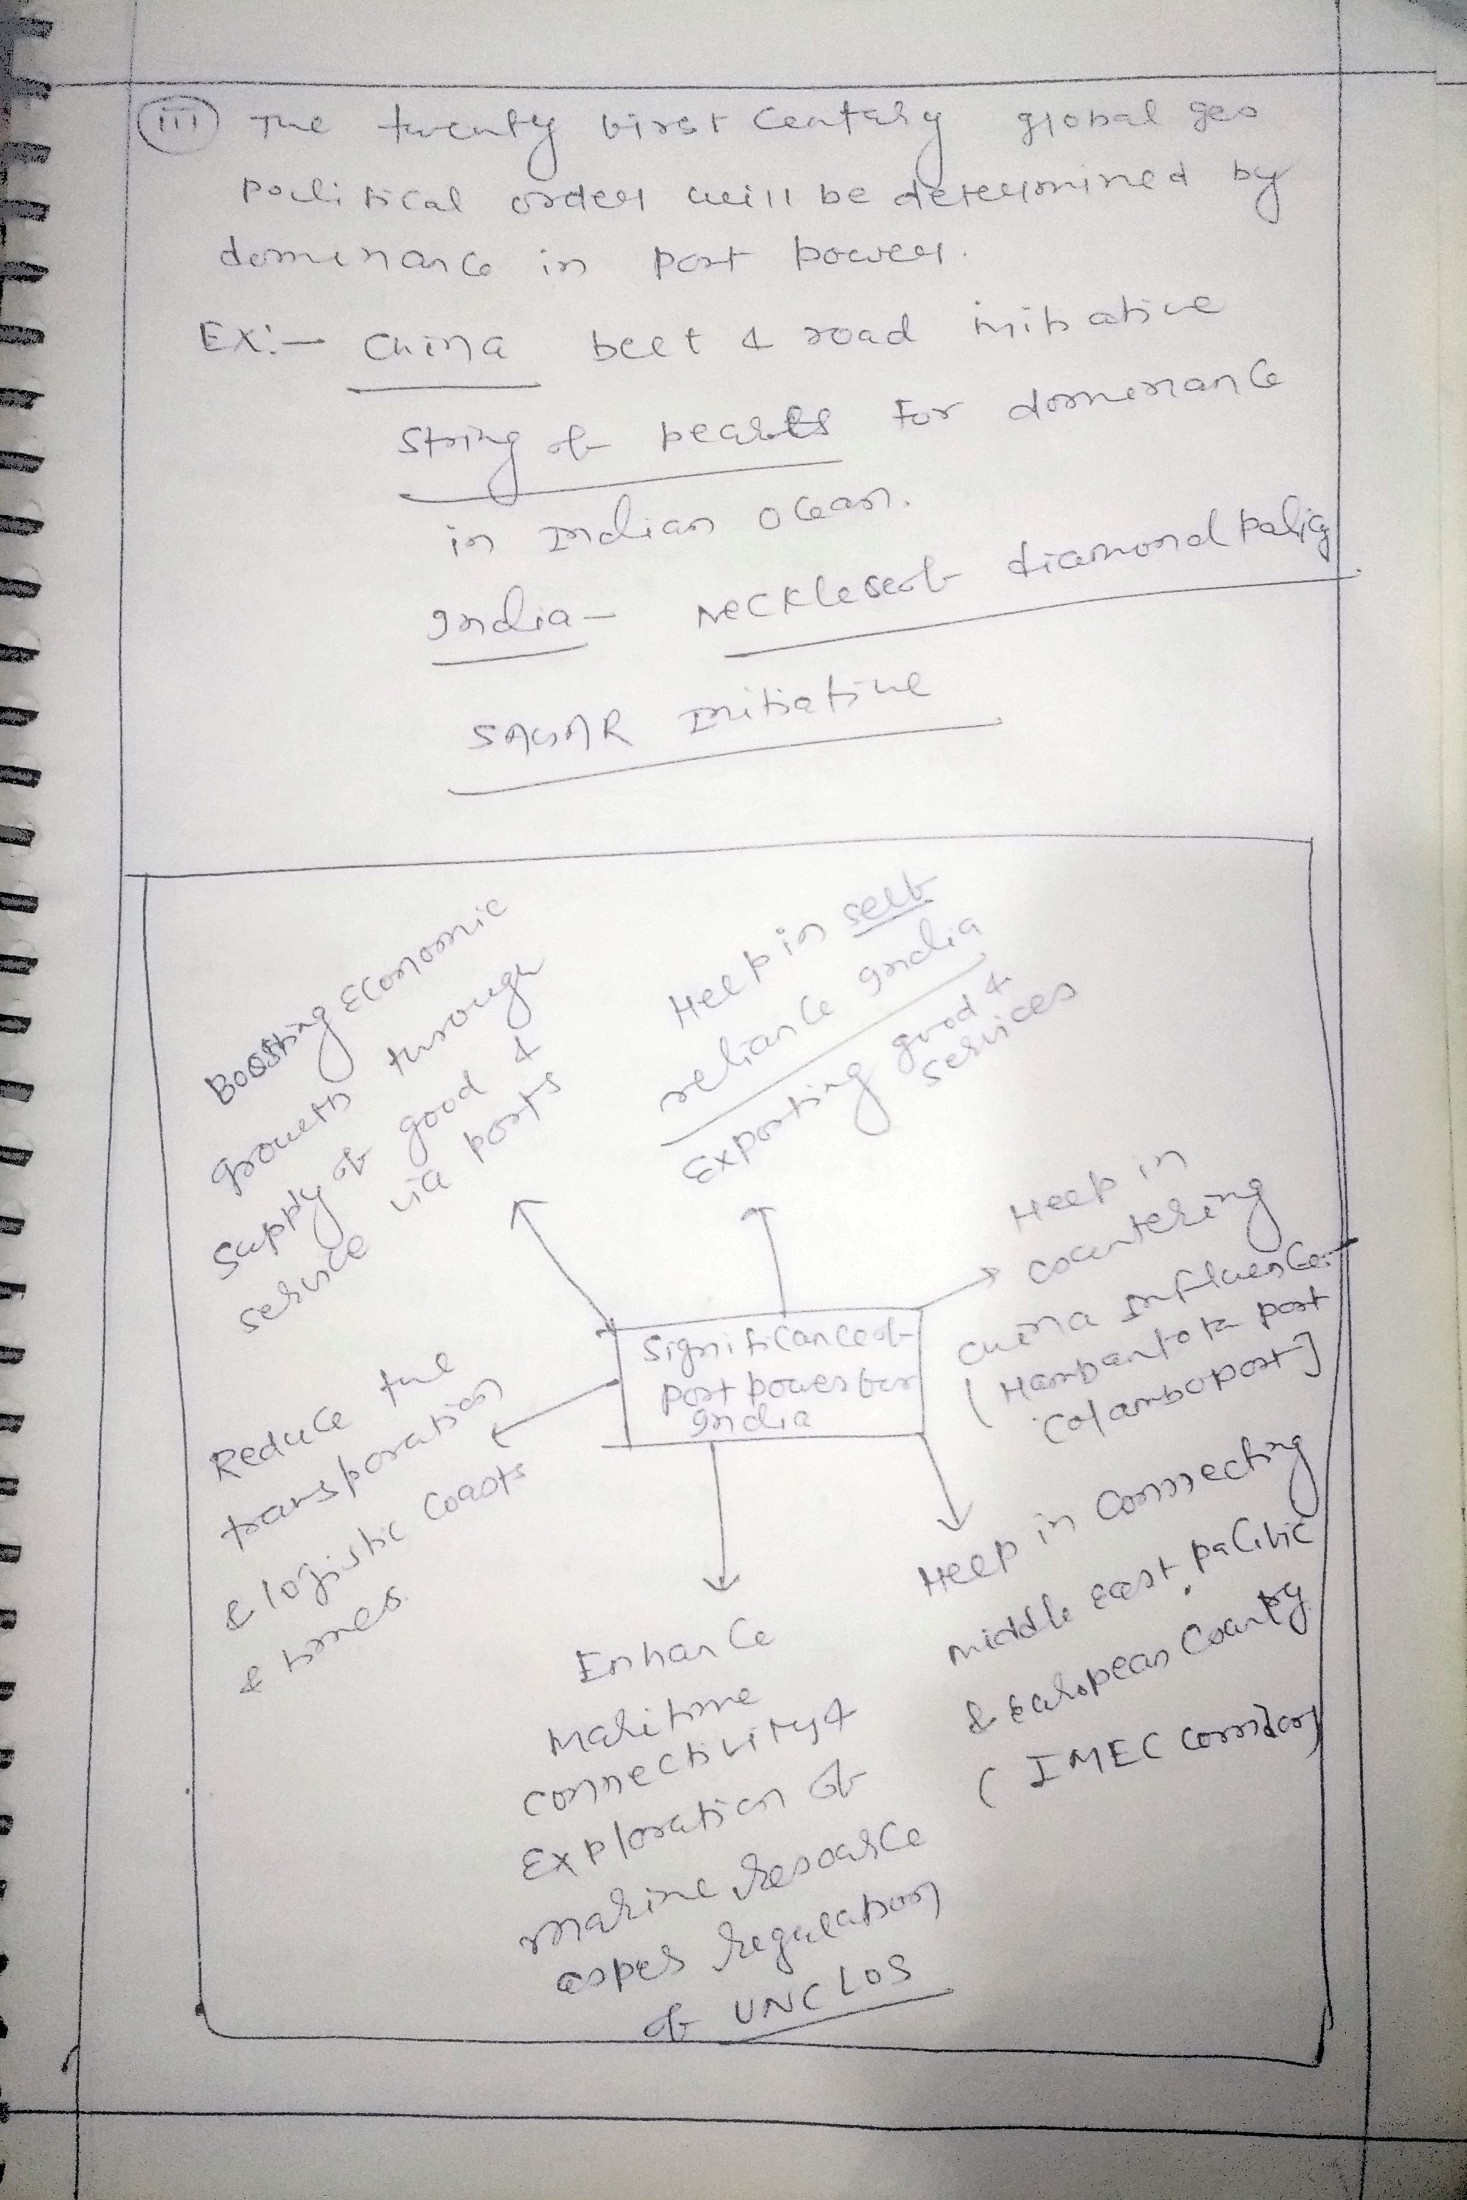 (iii) The twenty first century global geo
political order will be determined by
dominance in port power.
EX:- China belt & road initiative
string of pearls for domenance
in Indian ocean.
India - Neckleseof diamond policy
SAGAR Initiative
Boosting Economic
growth through
supply of good &
service via ports
Help in self
reliance India
Exporting good &
services
Help in
countering
china Influence.
(Hambantota port
Colamboport]
Significance of
port power for
India
Reduce the
transporation
& logistic coasts
& times
Help in connecting
middle east, pacific
& European Country
(IMEC corridor)
Enhance
maritime
connectivity &
Exploration of
marine resource
asper regulation
of UNCLOS